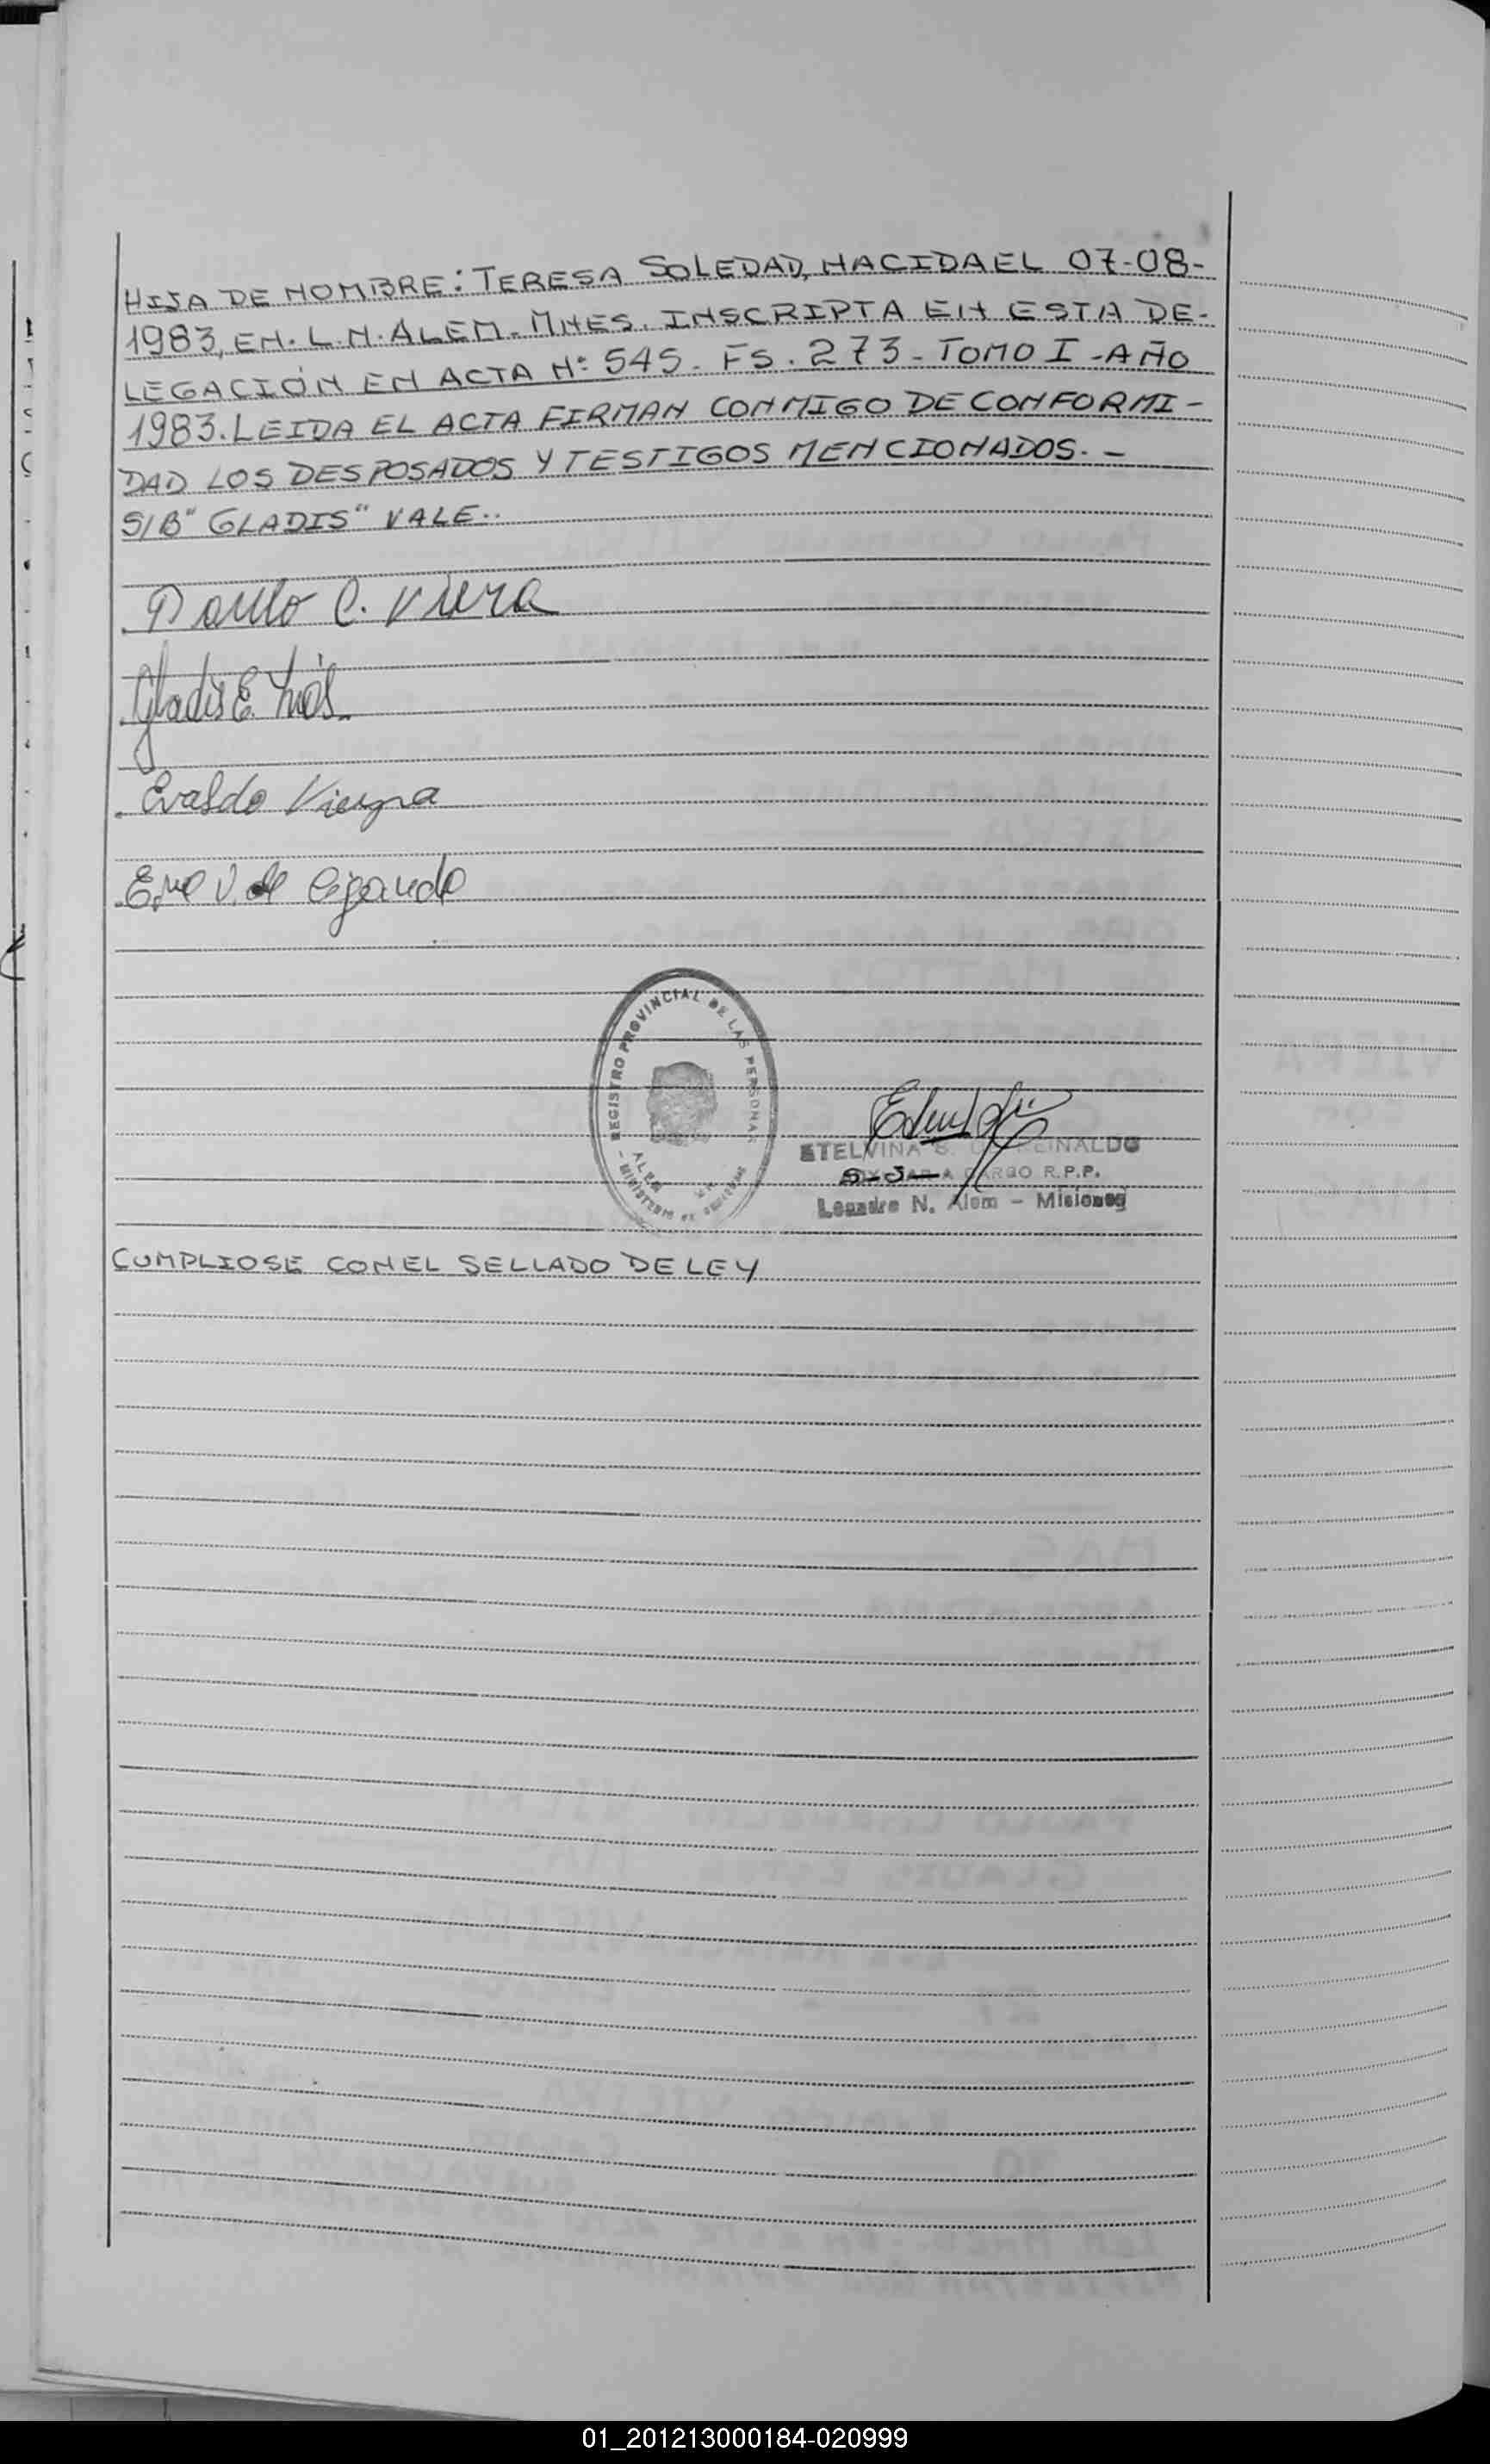 HIJA DE NOMBRE: TERESA SOLEDAD, NACIDA EL 07-08-
1983, EN. L.N. ALEM. MNES. INSCRIPTA EN ESTA DE-
LEGACIÓN EN ACTA Nº 545. FS. 273 - TOMO I - AÑO
1983. LEIDA EL ACTA FIRMAN CONMIGO DE CONFORMI-
DAD LOS DESPOSADOS Y TESTIGOS MENCIONADOS. -
S/B "GLADIS" VALE..
Paulo C. Viera
Gladis E.
Evaldo Vieyra
V. de
REGISTRO PROVINCIAL DE LAS PERSONAS
ALEM
MINISTERIO DE
ETELVINA S. REINALDO
A CARGO R.P.P.
Leandro N. Alem - Misiones
CUMPLIOSE CON EL SELLADO DE LEY
01_201213000184-020999